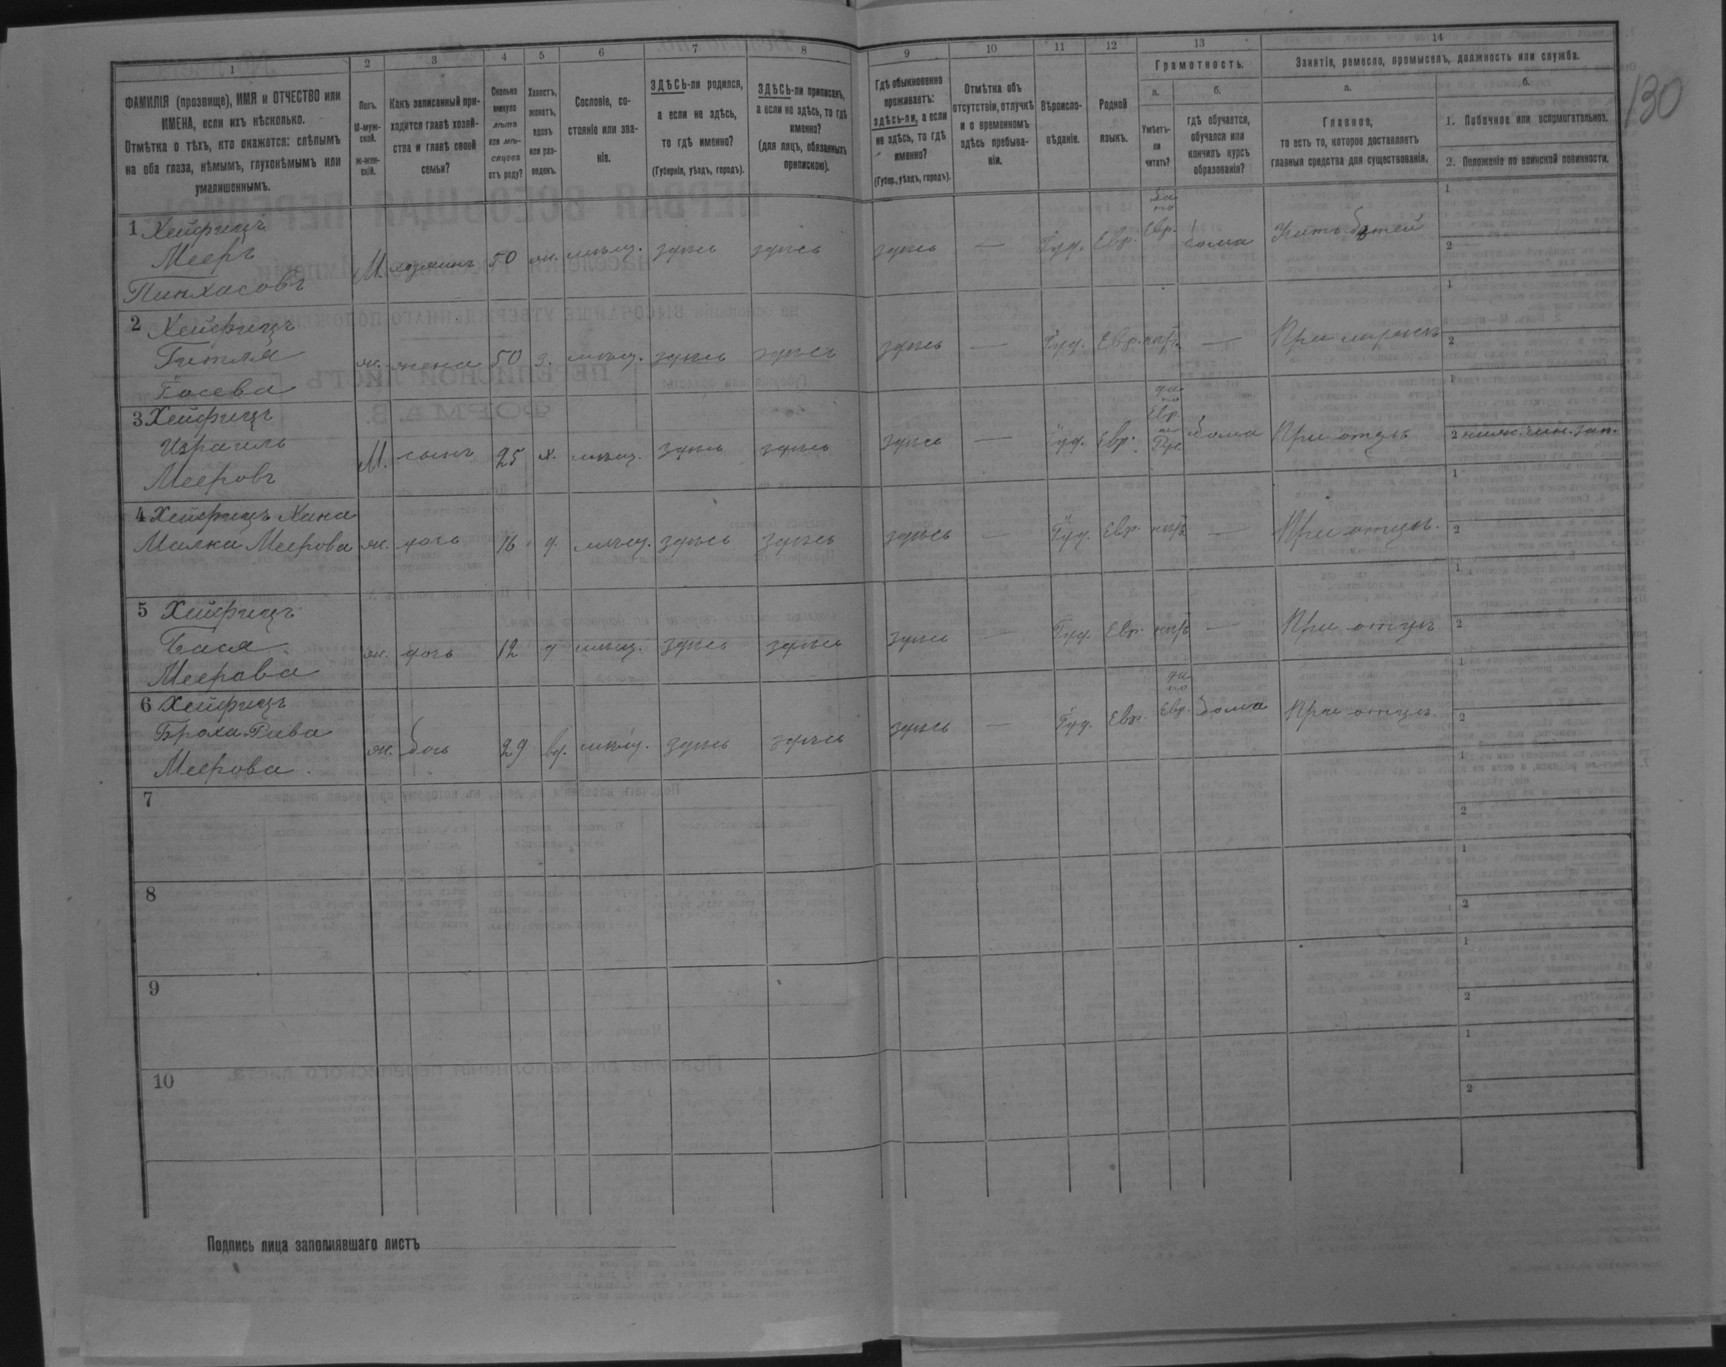 130
1 2 3 4 5 6 7 8 9 10 11 12 13 14
ФАМИЛІЯ (прозвище), ИМЯ и ОТЧЕСТВО или
ИМЕНА, если ихъ нѣсколько.
Отмѣтка о тѣхъ, кто окажется: слѣпымъ
на оба глаза, нѣмымъ, глухонѣмымъ или
умалишеннымъ.
Полъ.
М-муж-
ской.
ж-жен-
скій.
Какъ записанный при-
ходится главѣ хозяй-
ства и главѣ своей
семьи?
Сколько
минуло
лѣтъ
или мѣ-
сяцевъ
отъ роду?
Холостъ,
женатъ,
вдовъ
или раз-
веденъ.
Сословіе, со-
стояніе или зва-
ніе.
ЗДѢСЬ-ли родился,
а если не здѣсь,
то гдѣ именно?
(Губернія, уѣздъ, городъ).
ЗДѢСЬ-ли приписанъ,
а если не здѣсь, то гдѣ
именно?
(для лицъ, обязанныхъ
припискою).
Гдѣ обыкновенно
проживаетъ:
здѣсь-ли, а если
не здѣсь, то гдѣ
именно?
(Губер., уѣздъ, городъ).
Отмѣтка объ
отсутствіи, отлучкѣ
и о временномъ
здѣсь пребыва-
ніи.
Вѣроиспо-
вѣданіе.
Родной
языкъ.
Грамотность.
а.
Умѣетъ-
ли
читать?
б.
гдѣ обучается,
обучался или
кончилъ курсъ
образованія?
Занятія, ремесло, промыселъ, должность или служба.
а.
Главное,
то есть то, которое доставляетъ
главныя средства для существованія.
б.
1. Побочное или вспомогательное.
2. Положеніе по воинской повинности.
1 Хейфицъ
Мееръ
Пинхасовъ
М. хозяинъ 50 ж. мѣщ. здѣсь здѣсь здѣсь — Іуд. Евр. да по Евр. дома
1
2
2 Хейфицъ
Гитля
ж. жена 50 з. мѣщ. здѣсь здѣсь здѣсь — Іуд. Евр. нѣтъ — При мужѣ
1
2
3 Хейфицъ
Израиль
Мееровъ
М. сынъ 25 х. мѣщ. здѣсь здѣсь здѣсь — Іуд. Евр. да по Евр. дома При отцѣ
1
2 нижн. чин. зап.
4 Хейфицъ Хана
Малка Меерова
ж. дочь 16 д. мѣщ. здѣсь здѣсь здѣсь — Іуд. Евр. нѣтъ — При отцѣ.
1
2
5 Хейфицъ
Бася
Меерова
ж. дочь 12 д. мѣщ. здѣсь здѣсь здѣсь — Іуд. Евр. нѣтъ — При отцѣ
1
2
6 Хейфицъ
Броха Рива
Меерова.
ж. дочь 29 вд. мѣщ. здѣсь здѣсь здѣсь — Іуд. Евр. да по Евр. дома При отцѣ.
1
2
7
1
2
8
1
2
9
1
2
10
1
2
Подпись лица заполнявшаго листъ